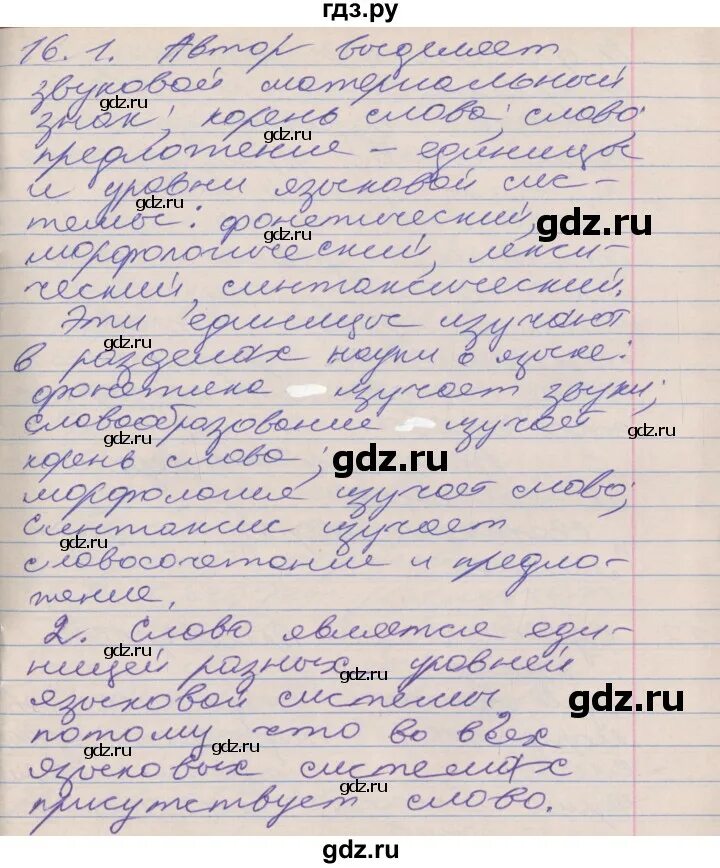 гдз.ру
16. 1. Автор выделяет
звуковой материальный
gdz.ru
знак; корень слова; слово;
gdz.ru
предложение – единицы
и уровни языковой сис-
gdz.ru
темы: фонетический,
gdz.ru
морфологический, лекси-
ческий, синтаксический.
Эти единицы изучают
gdz.ru
в разделах науки о языке:
фонетика – изучает звуки;
словообразование – изучает
gdz.ru
gdz.ru
корень слова;
gdz.ru
морфология изучает слово;
синтаксис изучает
gdz.ru
словосочетание и предло-
жение.
2. Слово является еди-
ницей разных уровней
gdz.ru
языковой системы,
gdz.ru
потому что во всех
gdz.ru
языковых системах
gdz.ru
присутствует слово.
gdz.ru